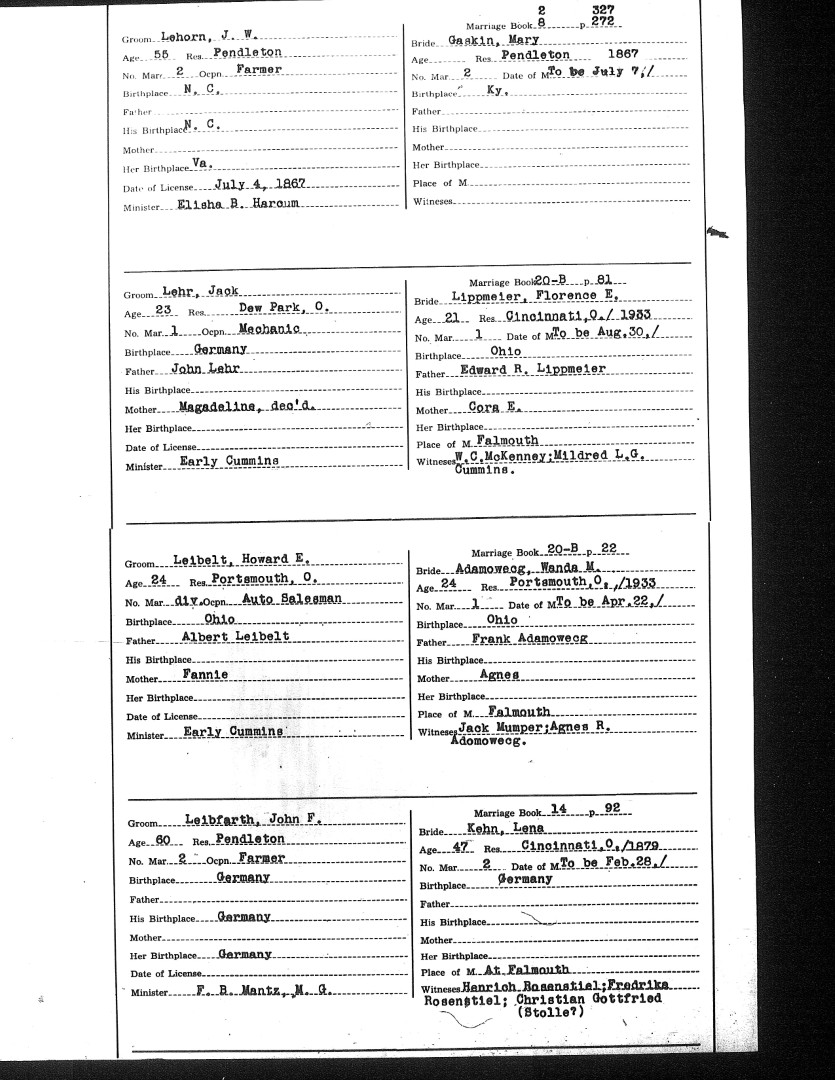 2 327
Marriage Book 8 p. 272
Groom Lehorn, J. W.
Bride Gaskin, Mary
Age 55 Res. Pendleton
Age Res Pendleton 1867
No. Marr. 2 Ocpn. Farmer
No. Mar 2 Date of M To be July 7,/
Birthplace N. C.
Birthplace Ky.
Father
Father
His Birthplace N. C.
His Birthplace
Mother
Mother
Her Birthplace Va.
Her Birthplace
Date of License July 4, 1867
Place of M.
Minister Elisha B. Harcum
Witneses
Marriage Book 20-B p 81
Groom Lehr, Jack
Bride Lippmeier, Florence E.
Age 23 Res. Dew Park, O.
Age 21 Res Cincinnati,O./ 1933
No. Mar 1 Ocpn. Mechanic
No. Mar. 1 Date of M To be Aug.30,/
Birthplace Germany
Birthplace Ohio
Father John Lehr
Father Edward R. Lippmeier
His Birthplace
His Birthplace
Mother Magadeline, dec'd.
Mother Cora E.
Her Birthplace
Her Birthplace
Date of License
Place of M. Falmouth
Minister Early Cummins
Witneses W.C.McKenney;Mildred L.G.
Cummins.
Marriage Book 20-B p 22
Groom Leibelt, Howard E.
Bride Adamowecg, Wanda M.
Age 24 Res. Portsmouth, O.
Age 24 Res. Portsmouth,O. /1933
No. Mar div. Ocpn. Auto Salesman
No. Mar 1 Date of M To be Apr.22,/
Birthplace Ohio
Birthplace Ohio
Father Albert Leibelt
Father Frank Adamowecg
His Birthplace
His Birthplace
Mother Fannie
Mother Agnes
Her Birthplace
Her Birthplace
Date of License
Place of M. Falmouth
Minister Early Cummins
Witneses Jack Mumper;Agnes R.
Adomowecg.
Marriage Book 14 p. 92
Groom Leibfarth, John F.
Bride Kehn, Lena
Age 60 Res. Pendleton
Age 47 Res Cincinnati,O./1879
No. Mar. 2 Ocpn. Farmer
No. Mar. 2 Date of M To be Feb.28,/
Birthplace Germany
Birthplace Germany
Father
Father
His Birthplace Germany
His Birthplace
Mother
Mother
Her Birthplace Germany
Her Birthplace
Date of License
Place of M. At Falmouth
Minister F. B. Mantz, M. G.
Witneses Henrich Rosenstiel;Fredrika
Rosenstiel; Christian Gottfried
(Stolle?)